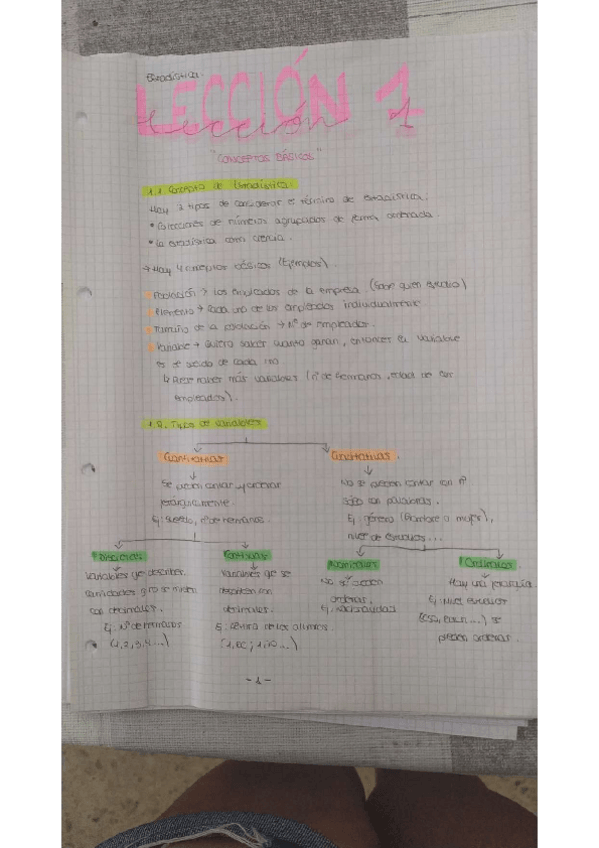 Estadística.
LECCIÓN 1
Lección 1
"CONCEPTOS BÁSICOS"
1.1 Concepto de Estadística.
Hay 2 tipos de considerar el término de estadística:
• Colecciones de números agrupados de forma ordenada.
• La estadística como ciencia.
→ Hay 4 conceptos básicos (Ejemplos).
Población → Los empleados de la empresa (Sobre quien estudio)
Elemento → Cada uno de los empleados individualmente.
Tamaño de la población → Nº de empleados.
Variable → Quiero saber cuanto ganan, entonces la variable
es el sueldo de cada uno
↳ Puede haber más variables (nº de hermanos, edad de los
empleados).
1.2. Tipos de variables
Cuantitativas
Cualitativas.
Se pueden contar y ordenar
jerárquicamente.
Ej: sueldo, nº de hermanos.
No se pueden contar con nº
solo con palabras.
Ej: género (Hombre o mujer),
nivel de estudios...
Discretas
Variables que describen
cantidades q no se miden
con decimales.
Ej: Nº de hermanos
(1,2,3,4...)
Continuas
Variables que se
describen con
decimales.
Ej: altura de los alumnos.
(1,60; 1,70...)
Nominales
No se pueden
ordenar.
Ej: nacionalidad
Ordinales
Hay una jerarquía
Ej: Nivel
(ESO, ...) se
pueden ordenar.
-1-